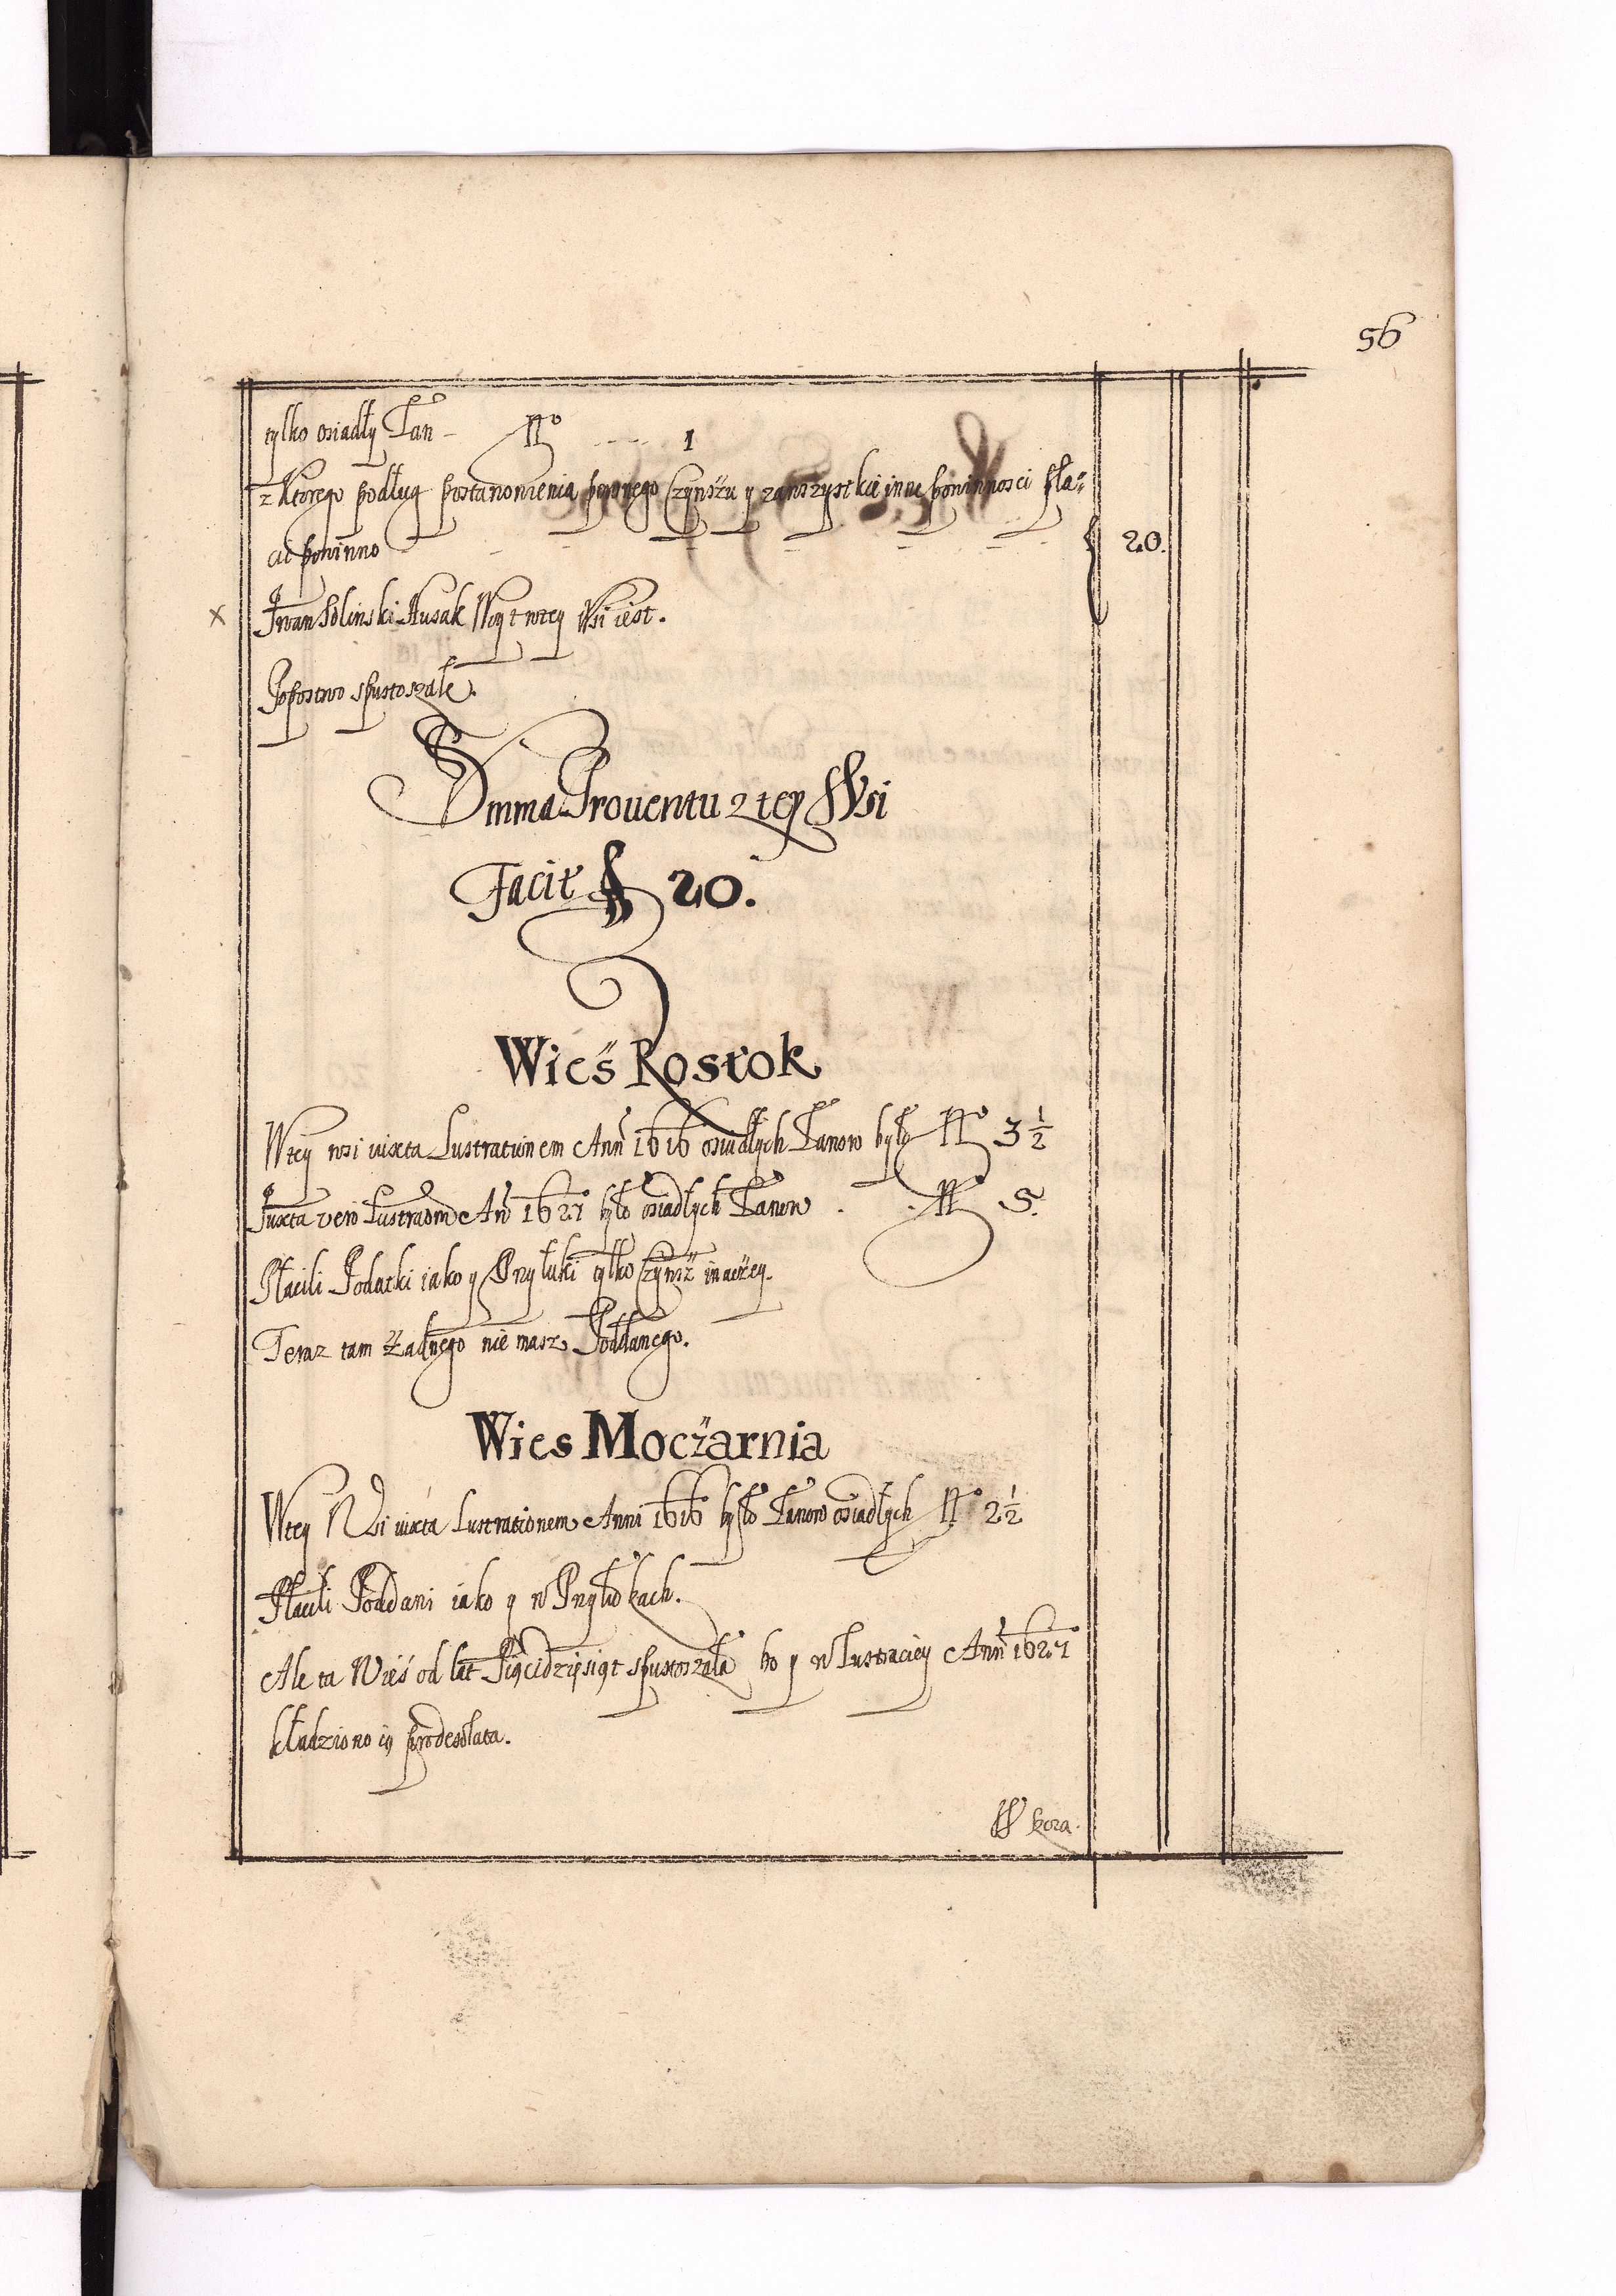 56
tylko osiadły Łan - No 1
z ktorego podług postanowienia pewnego Czynszu y zawszystkie inne powinnosci pła=
cic powinno 20.
x Iwan Solinski Husak Woyt wtey Wsi iest.
Popostwo spustoszałe.
Summa Prouentu z tey Wsi
Facit f 20.
Wieś Rostok
Wtey wsi iuxta Lustrationem Anni 1616 osiadłych Łanow było No 3 1/2
Iuxta vero Lustraom Ani 1627 było osiadłych Łanow . . No 5.
Płacili Podatki iako y Przyłuki tylko Czynsz inaczey.
Teraz tam żadnego nie masz Poddanego.
Wies Moczarnia
Wtey Wsi iuxta Lustrationem Anni 1616 było Łanow osiadłych No 2 1/2
Płacili Poddani iako y w Przyłokach.
Ale ta Wieś od lat Pięcidziesiąt spustoszała bo y w Lustraciey Anni 1627
kładziono ią pro desolata.